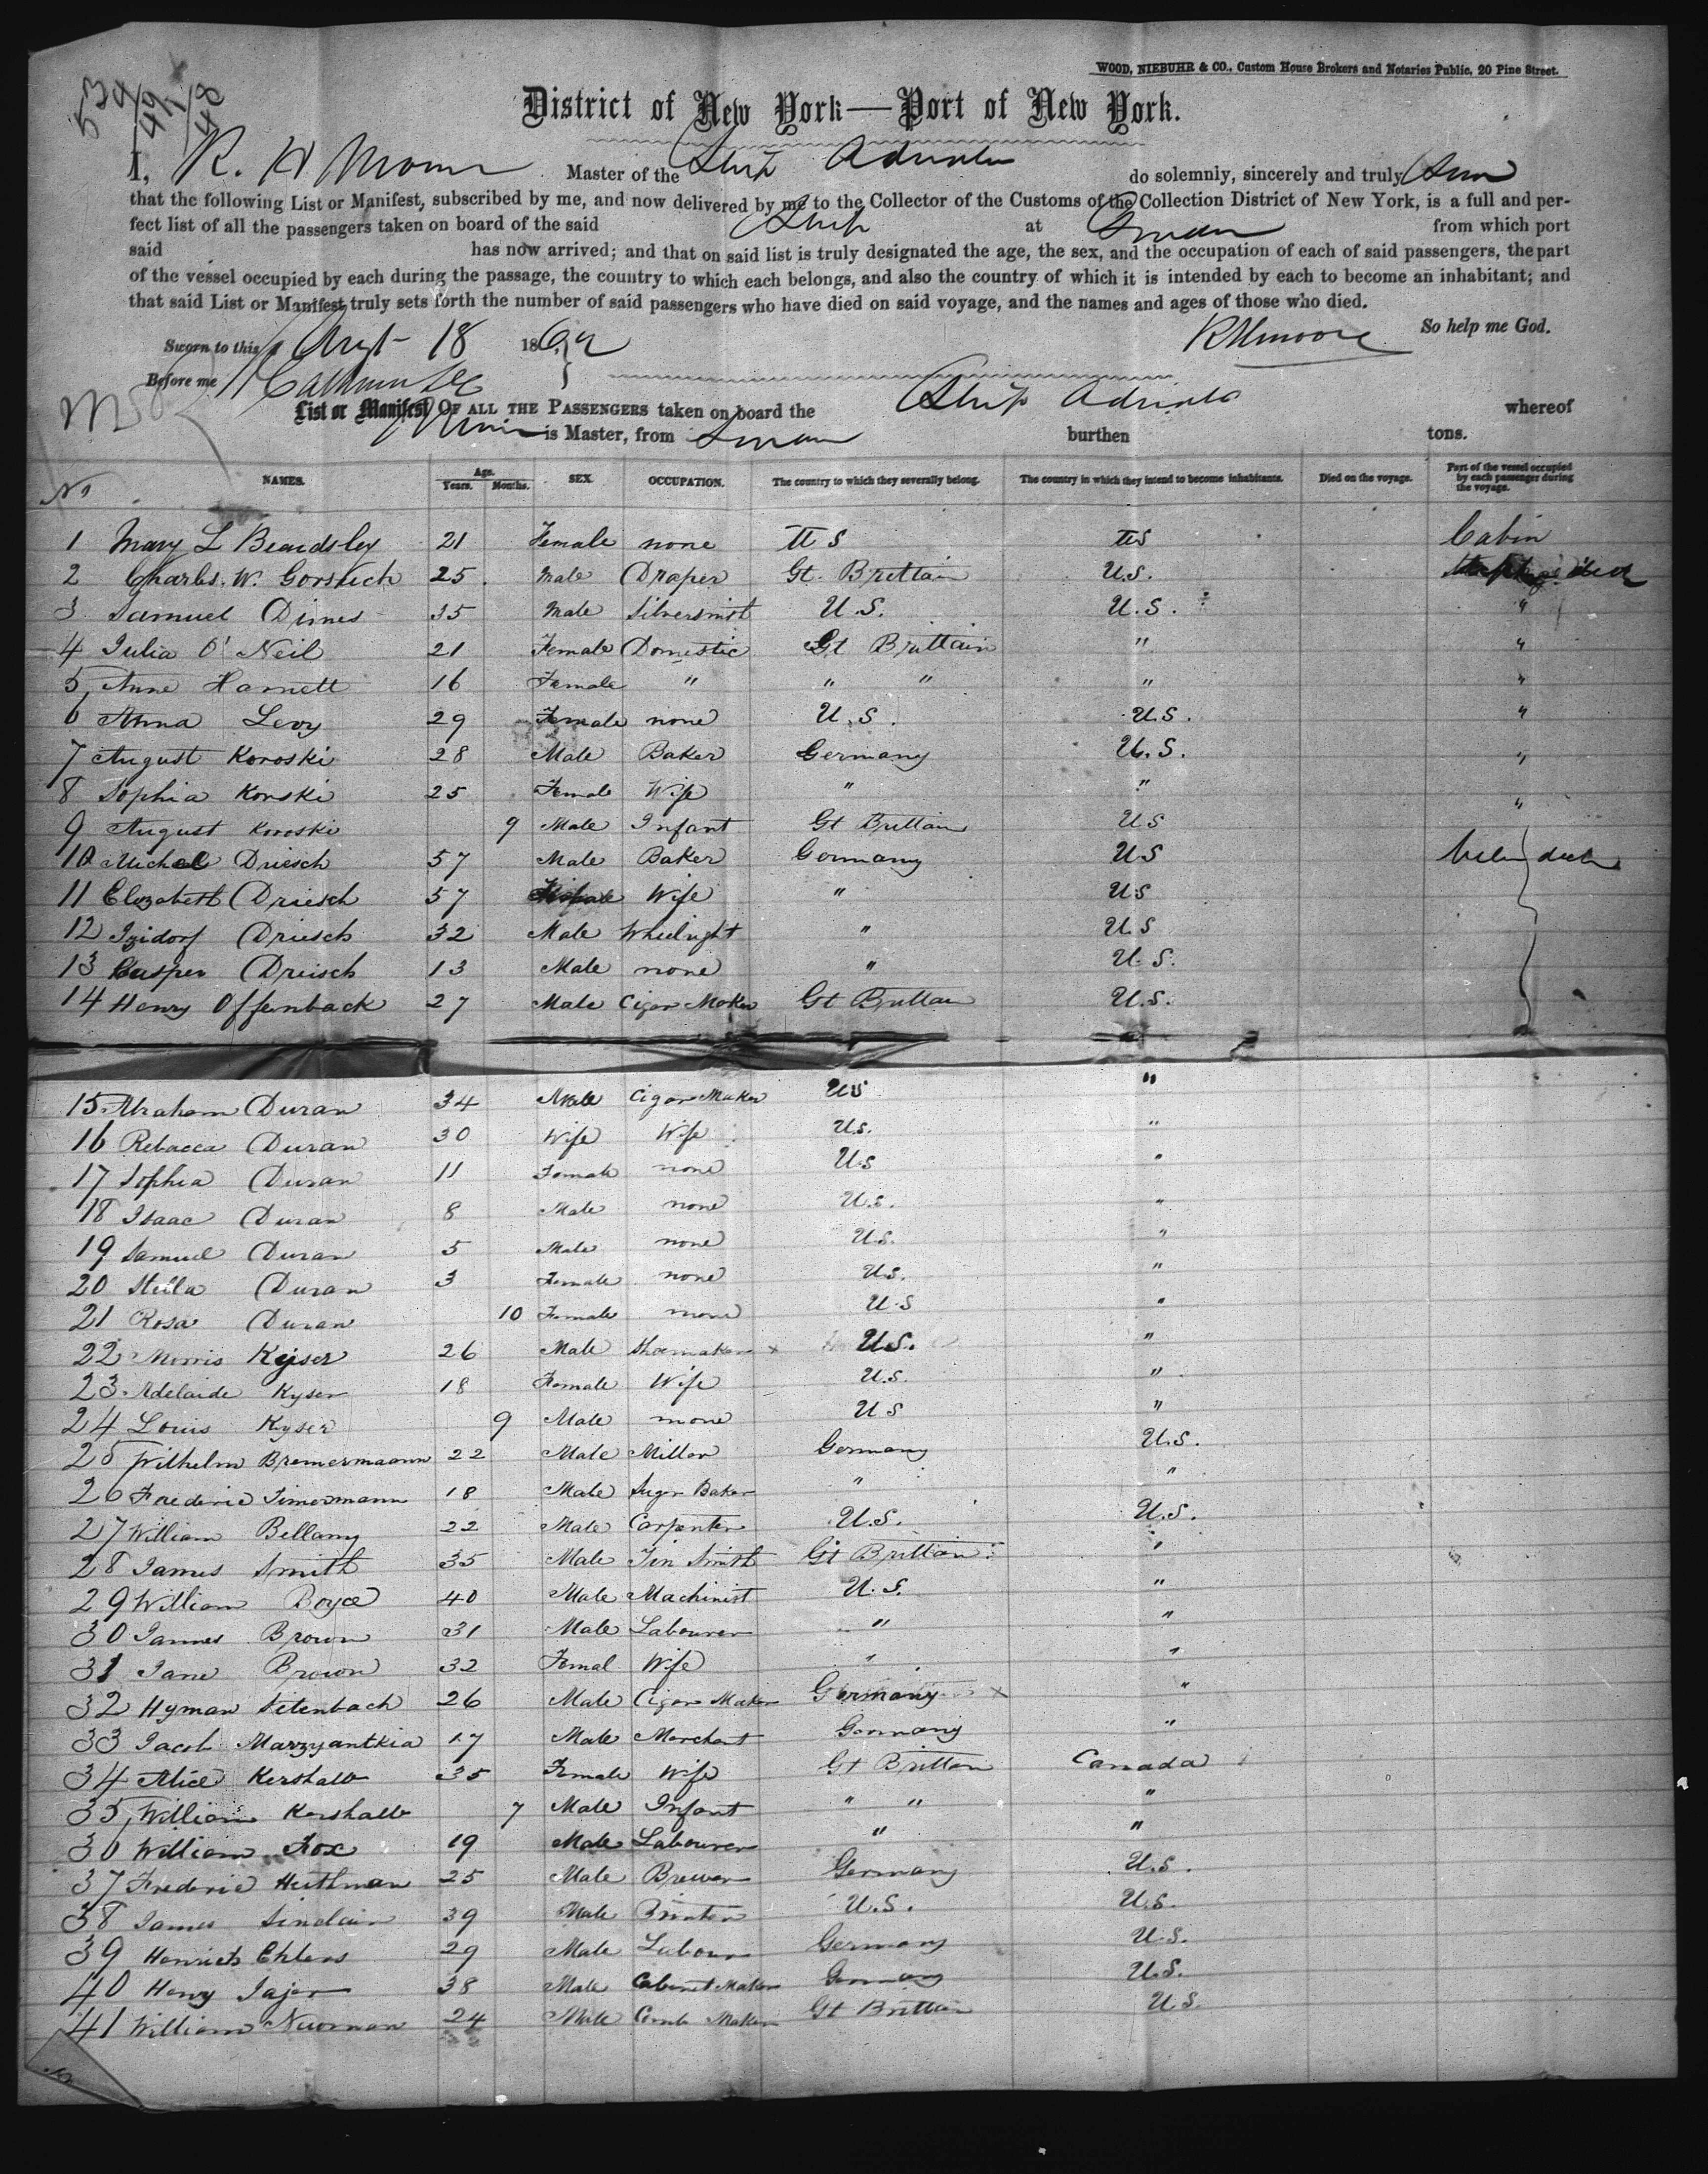 WOOD, NIEBUHR & CO., Custom House Brokers and Notaries Public, 20 Pine Street.
534
49
48
District of New York—Port of New York.
I, R. H Moore Master of the Ship do solemnly, sincerely and truly
that the following List or Manifest, subscribed by me, and now delivered by me to the Collector of the Customs of the Collection District of New York, is a full and per-
fect list of all the passengers taken on board of the said Ship at London from which port
said has now arrived; and that on said list is truly designated the age, the sex, and the occupation of each of said passengers, the part
of the vessel occupied by each during the passage, the country to which each belongs, and also the country of which it is intended by each to become an inhabitant; and
that said List or Manifest truly sets forth the number of said passengers who have died on said voyage, and the names and ages of those who died.
So help me God.
RHmoore
Sworn to this 18 1869
Before me
List or Manifest OF ALL THE PASSENGERS taken on board the Ship whereof
is Master, from London burthen tons.
No NAMES. Age. Years. Months. SEX. OCCUPATION. The country to which they severally belong. The country in which they intend to become inhabitants. Died on the voyage. Part of the vessel occupied by each passenger during the voyage.
1 Mary L Beardsley 21 Female none U S U S Cabin
2 Charles. W. Gorstich 25. Male Draper Gt. Brittain U.S.
3 Samuel Dimes 35 Male Silversmit U.S. U.S. "
4 Julia O'Neil 21 Female Domestic Gt Brittain " "
5 Anne Harnett 16 Female " " " " "
6 Anna Levy 29 Female none U.S. U.S. "
7 August Koroski 28 Male Baker Germany U.S. "
8 Sophia Korski 25 Female Wife " " "
9 August Koroski 9 Male Infant Gt Brittain U S
10 Michael Driesch 57 Male Baker Germany U S
11 Elizabeth Driesch 57 Wife " U S
12 Izidorf Driesch 32 Male Wheelright " U.S
13 Casper Driesch 13 Male none " U.S.
14 Henry Offenback 27 Male Cigar Maker Gt Brittain U.S.
15 Abraham Duran 34 Male Cigar Maker U S "
16 Rebacca Duran 30 Wife Wife U.S. "
17 Sophia Duran 11 Female none U.S "
18 Isaac Duran 8 Male none U.S. "
19 Samuel Duran 5 Male none U.S. "
20 Stella Duran 3 Female none U.S. "
21 Rosa Duran 10 Female none U.S "
22 Morris Kyser 26 Male Shoemaker x U.S. "
23 Adelaide Kyser 18 Female Wife U.S. "
24 Louis Kyser 9 Male none U S "
25 Wilhelm Bremermaann 22 Male Miller Germany U.S.
26 Frederic Timermann 18 Male Sugr Baker " "
27 William Bellamy 22 Male Carpenter U.S. U.S.
28 James Smith 35 Male Tin Smith Gt Brittain "
29 William Boyce 40 Male Machinist U.S. "
30 James Brown 31 Male Labourer " "
31 Jane Brown 32 Femal Wife " "
32 Hyman Sitenbach 26 Male Cigar Maker Germany x "
33 Jacob Marzyantkia 17 Male Merchant Germany "
34 Alice Kershall 35 Female Wife Gt Brittain Canada
35 William Kershall 7 Male Infant " " "
36 William Fox 19 Male Labourer " "
37 Frederic Huthman 25 Male Brewer Germany U.S.
38 James Sinclair 39 Male Printer U.S. U.S.
39 Henrich Ehlers 29 Male Labour Germany U.S.
40 Henry Jager 38 Male Cabinet Maker Germany U.S.
41 William Newman 24 Male Comb Maker Gt Brittain U S.